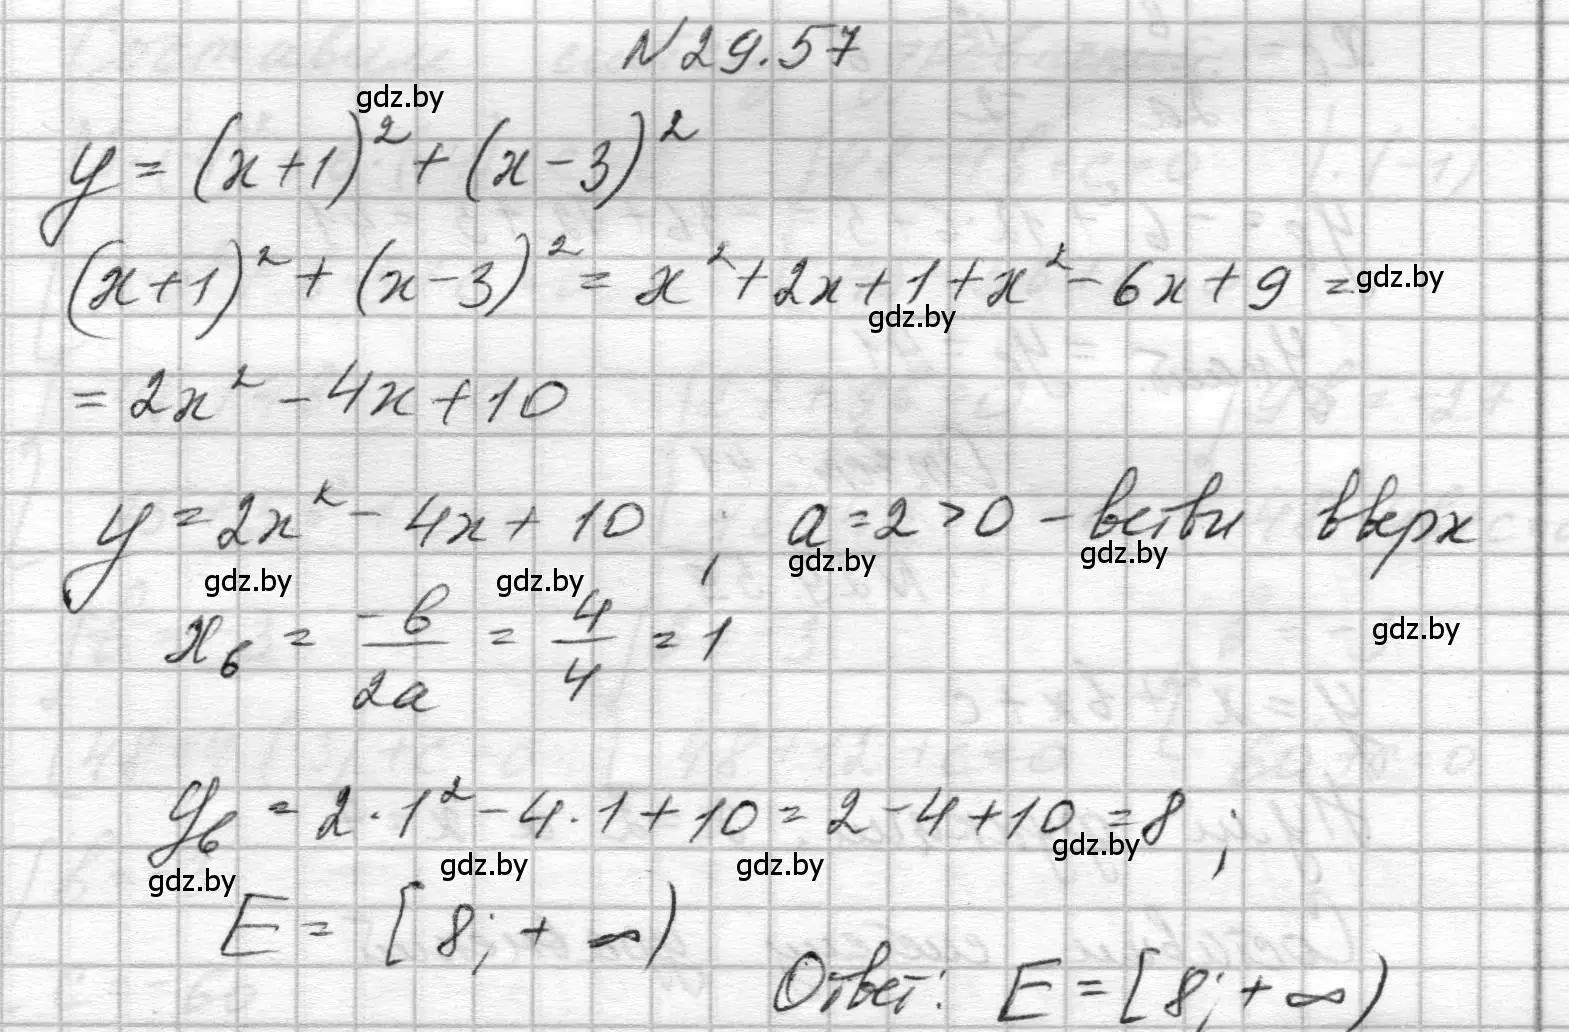 N 29.57
gdz.by
y = (x+1)² + (x-3)²
(x+1)² + (x-3)² = x² + 2x + 1 + x² - 6x + 9 =
gdz.by
gdz.by
= 2x² - 4x + 10
y = 2x² - 4x + 10 ; a = 2 > 0 - ветви вверх
gdz.by gdz.by gdz.by gdz.by
xв = -b/2a = 4/4 = 1
gdz.by
yв = 2·1² - 4·1 + 10 = 2 - 4 + 10 = 8 ;
gdz.by gdz.by gdz.by gdz.by
E = [8; +∞)
Ответ: E = [8; +∞)